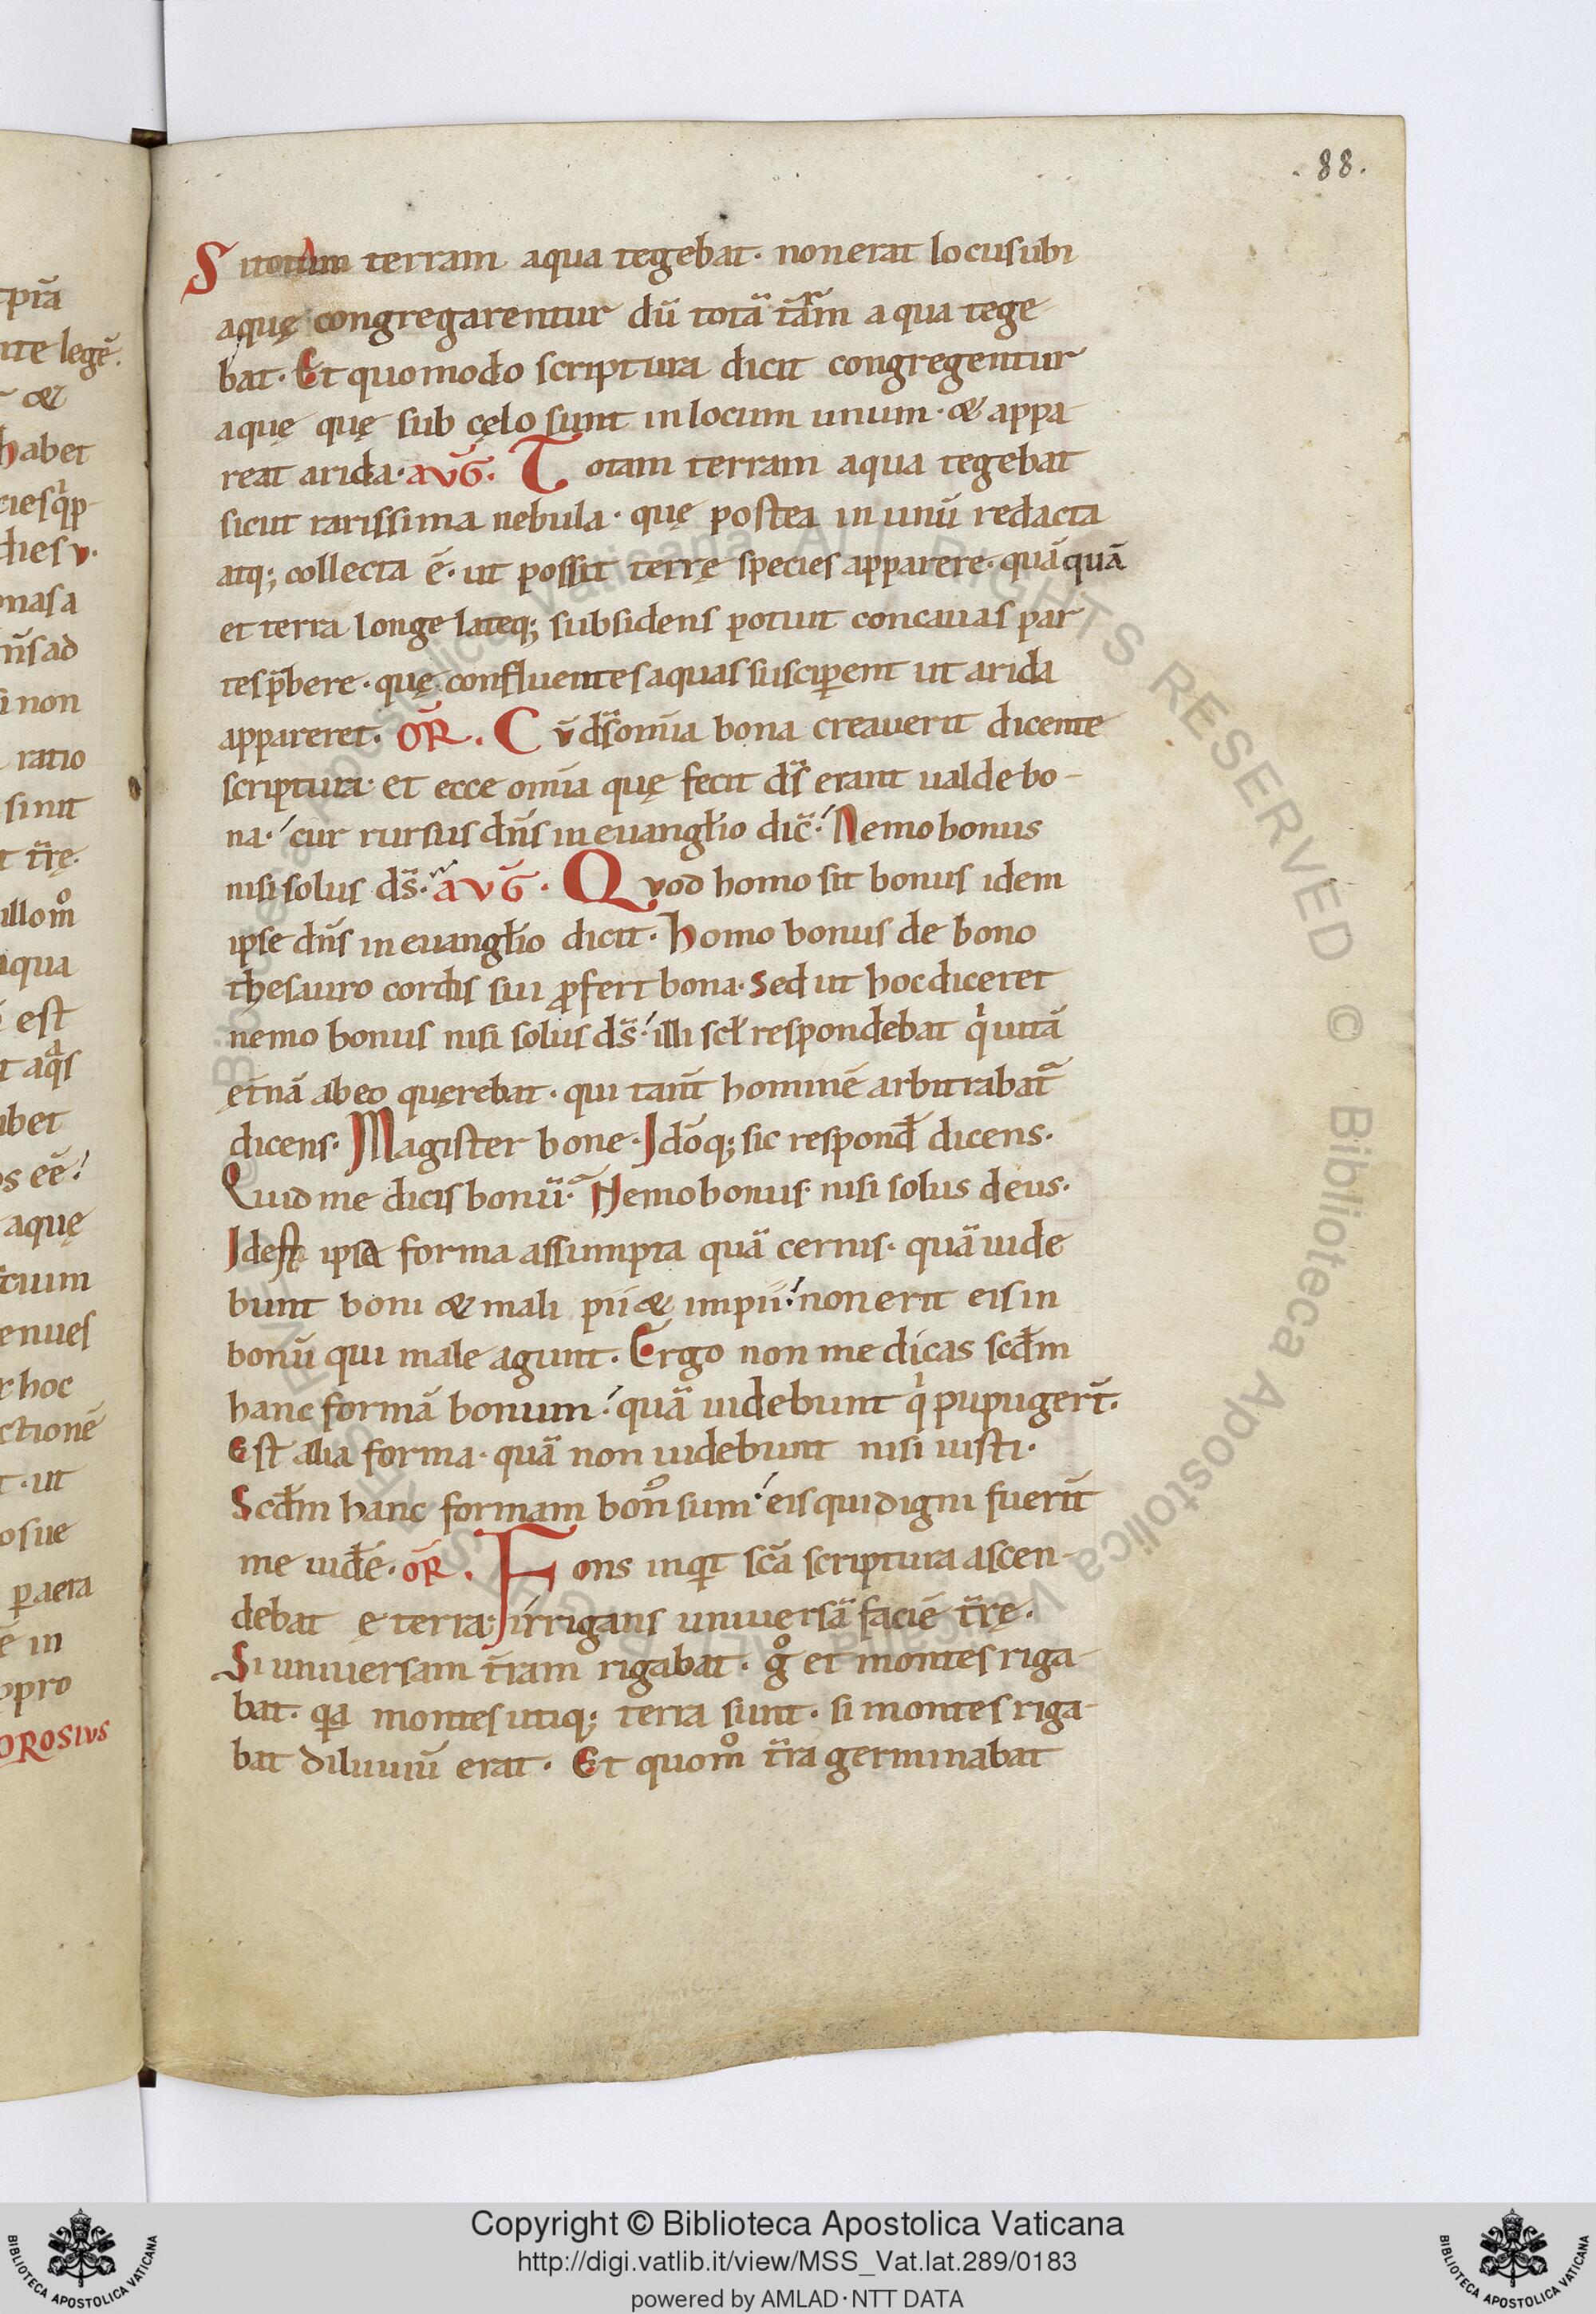 .88.
Si totam terram aqua tegebat· non erat locus ubi
aquę congregarentur dū totā t̄ram aqua tege
bat· Et quomodo scriptura dicit congregentur
aquę quę sub cęlo sunt in locum unum· & appa
reat arida· AVḠ. Totam terram aqua tegebat
sicut rarissima nebula· quę postea in unū redacta
atq; collecta ē· ut possit terrę species apparere· quāquā
et terra longe lateq; subsidens potuit concauas par
tes p̄bere· quę confluentes aquas susciperent ut arida
appareret. OR̄. Cv̄ ds̄ om̄ia bona creauerit dicente
scriptura· et ecce om̄ia quę fecit ds̄ erant ualde bo-
na·́ cur rursus dn̄s in euanglio dic̄·́ Nemo bonus
nisi solus ds̄· AVḠ· Qvod homo sit bonus idem
ipse dn̄s in euanglio dicit· homo bonus de bono
thesauro cordis sui ꝓfert bona· Sed ut hoc diceret
nemo bonus nisi solus ds̄·́ illi scł respondebat qͥ uitā
ęt̄nā ab eo quęrebat· qui tant̄ hominē arbitrabat᷑
dicens· Magister bone· Idōq; sic respond̄ dicens·
Quid me dicis bonū· Nemo bonus· nisi solus deus·
Idest ipsa forma assumpta quā cernis· quā uide
bunt boni & mali pii & impii·́ non erit eis in
bonū qui male agunt· Ergo non me dicas scd̄m
hanc formā bonum·́ quā uidebunt qͥ pupuger̄t·
Est alia forma· quā non uidebunt nisi iusti·
Scd̄m hanc formam bon᷒ sum·́ eis qui digni fuer̄it
me uid̄e· OR̄. Fons inqͥt sc̄a scriptura ascen-
debat ę terra· irrigans uniuersā faciē t̄rę·
Si uniuersam t̄ram rigabat· gͦ et montes riga-
bat· qͥa montes utiq; terra sunt· si montes riga-
bat diluuiū erat· Et quomͦ t̄ra germinabat
Copyright © Biblioteca Apostolica Vaticana
http://digi.vatlib.it/view/MSS_Vat.lat.289/0183
powered by AMLAD·NTT DATA